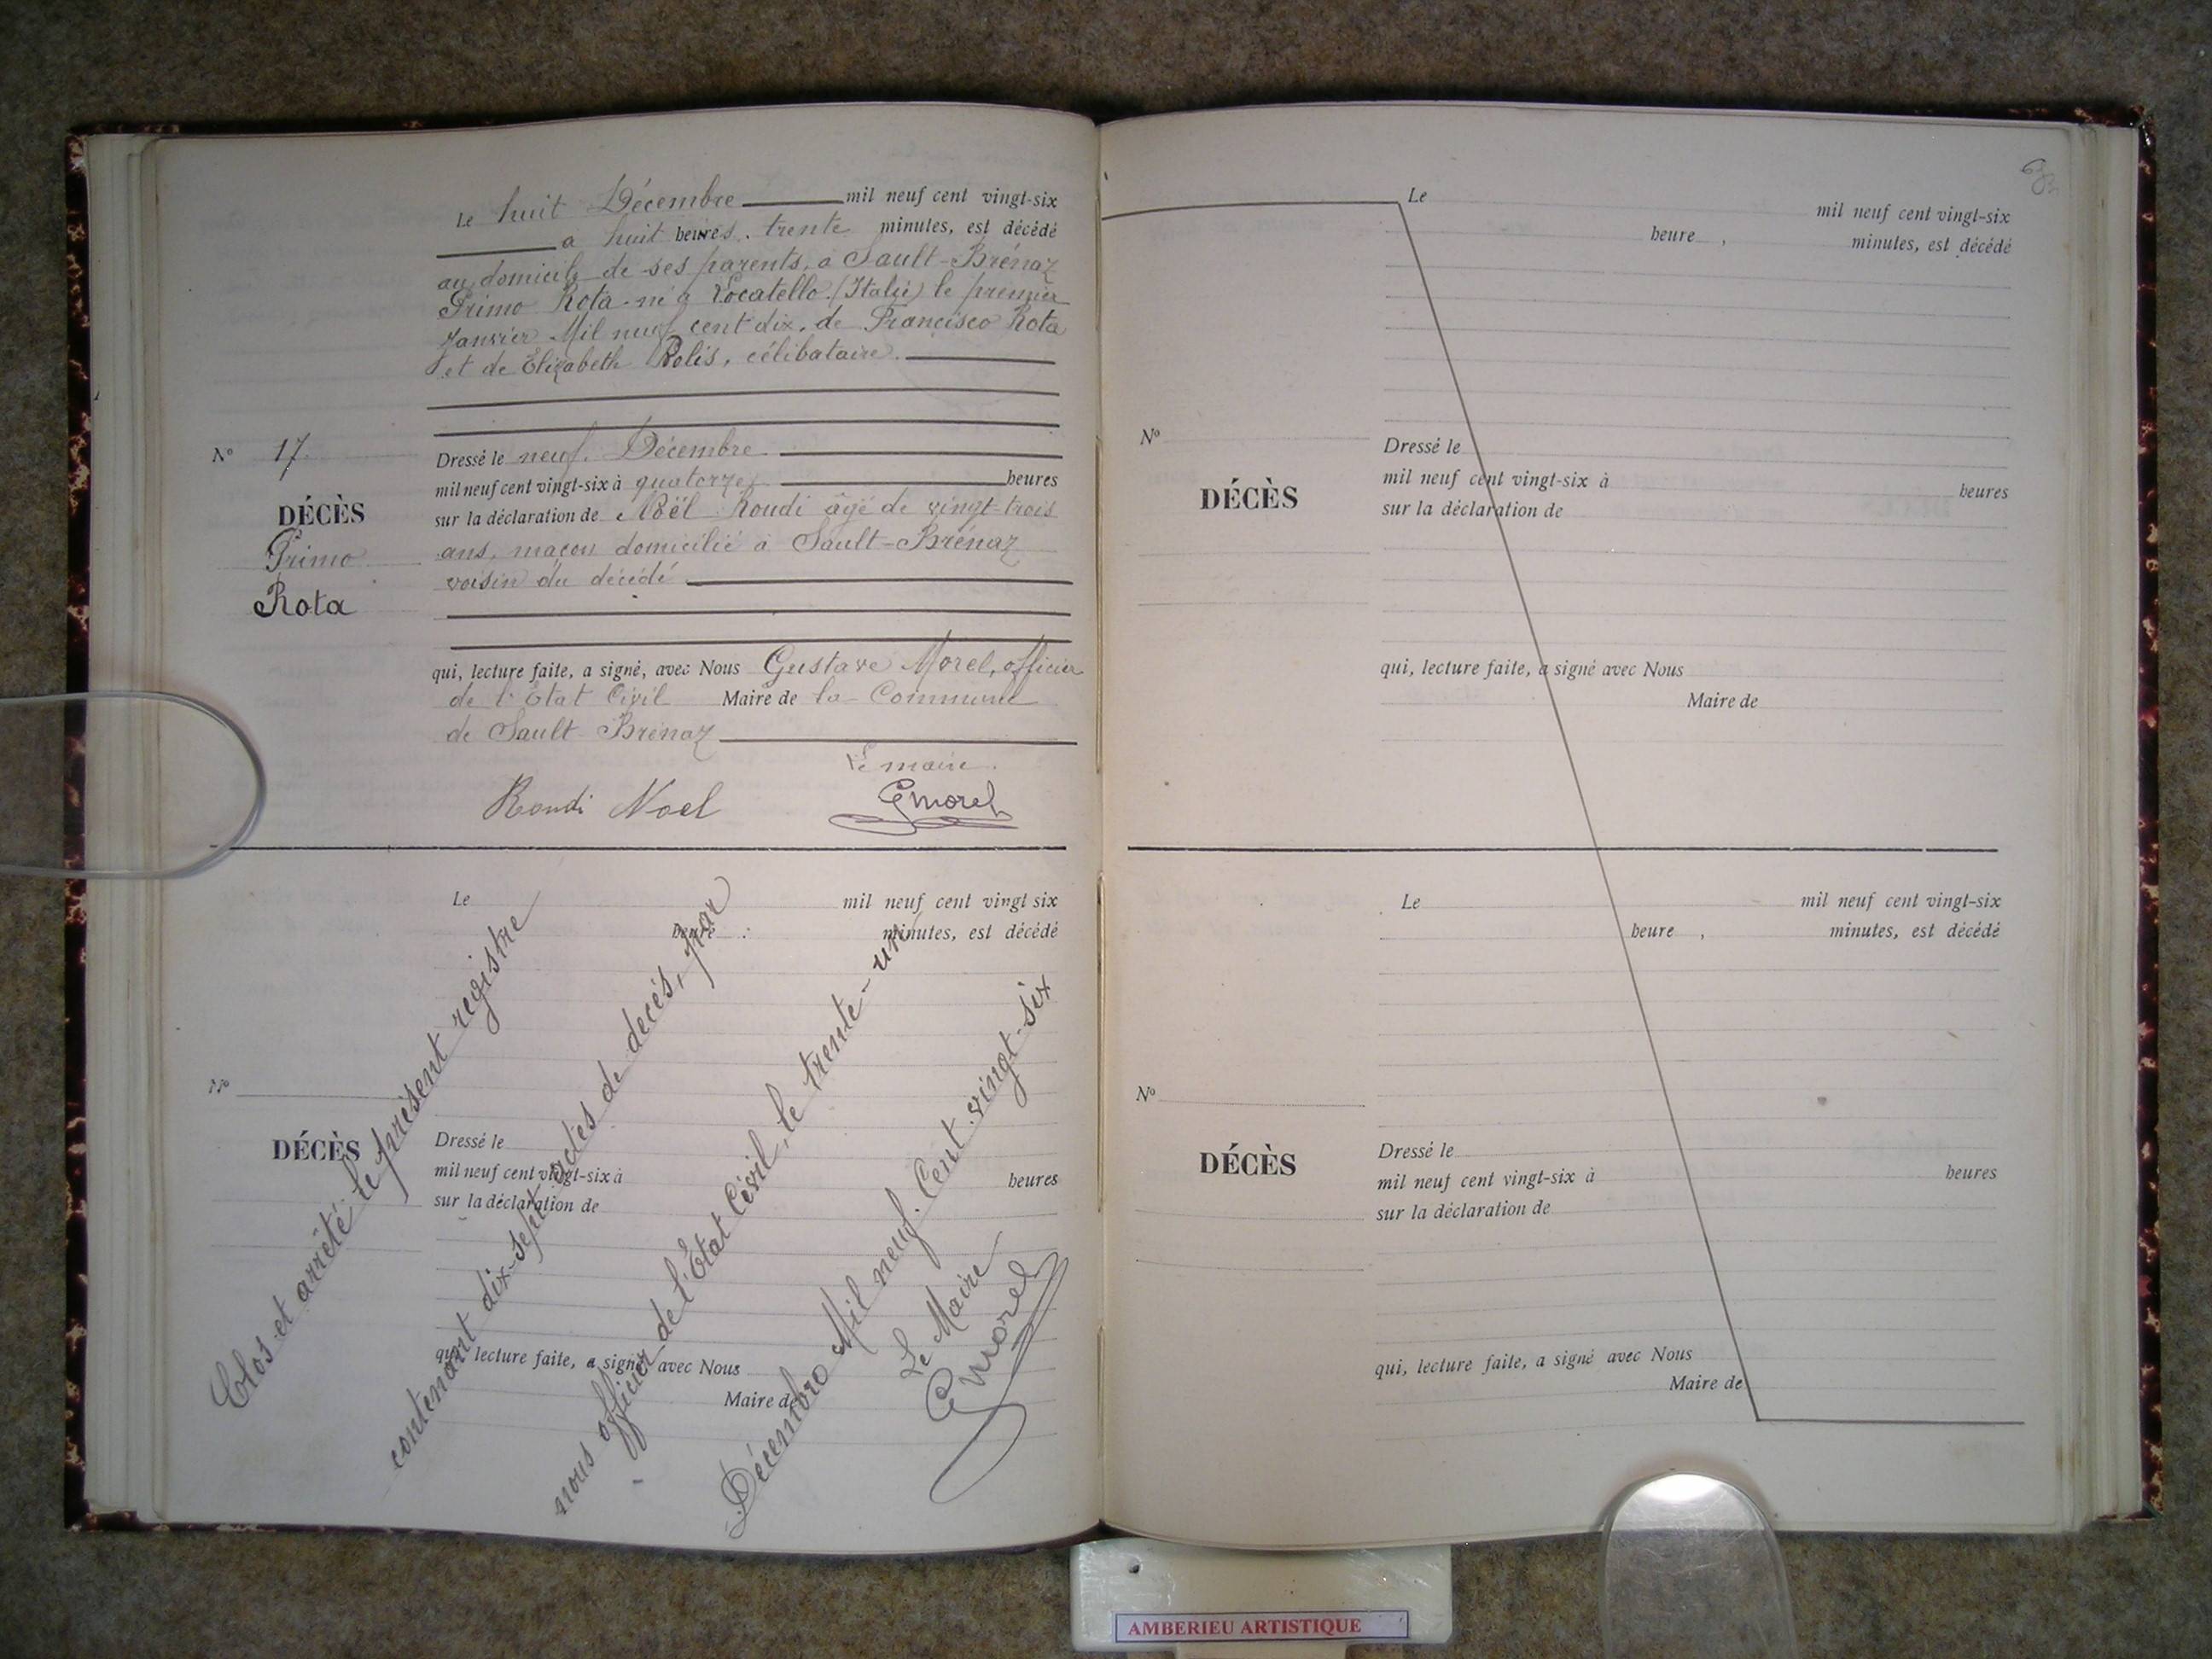 Le huit Décembre mil neuf cent vingt-six
a huit heures, trente minutes, est décédé
au domicile de ses parents, a Sault-Brénaz
Primo Rota né a Locatello (Italie) le premier
Janvier Mil neuf cent dix, de Francisco Rota
et de Elizabeth Rolis, célibataire.
N° 17
DÉCÈS
Primo
Rota
Dressé le neuf. Décembre
mil neuf cent vingt-six à quatorze heures
sur la déclaration de Noël Roudi âgé de vingt-trois
ans, maçon domicilié a Sault-Brénaz
voisin du décédé
qui, lecture faite, a signé, avec Nous Gustave Morel, officier
de l'Etat Civil Maire de la Commune
de Sault-Brénaz
Le maire.
Roudi Noel
GMorel
Le mil neuf cent vingt six
heure : minutes, est décédé
N°
DÉCÈS
Dressé le
mil neuf cent vingt-six à heures
sur la déclaration de
qui, lecture faite, a signé, avec Nous
Maire de
Clos et arrêté le présent registre
contenant dix-sept actes de decés, par
nous officier de l'État Civil, le trente-un
Décembre Mil neuf Cent vingt-six
Le Maire
GMorel
Le mil neuf cent vingt-six
heure , minutes, est décédé
N°
DÉCÈS
Dressé le
mil neuf cent vingt-six à heures
sur la déclaration de
qui, lecture faite, a signé avec Nous
Maire de
Le mil neuf cent vingt-six
heure , minutes, est décédé
N°
DÉCÈS
Dressé le
mil neuf cent vingt-six à heures
sur la déclaration de
qui, lecture faite, a signé avec Nous
Maire de
AMBERIEU ARTISTIQUE